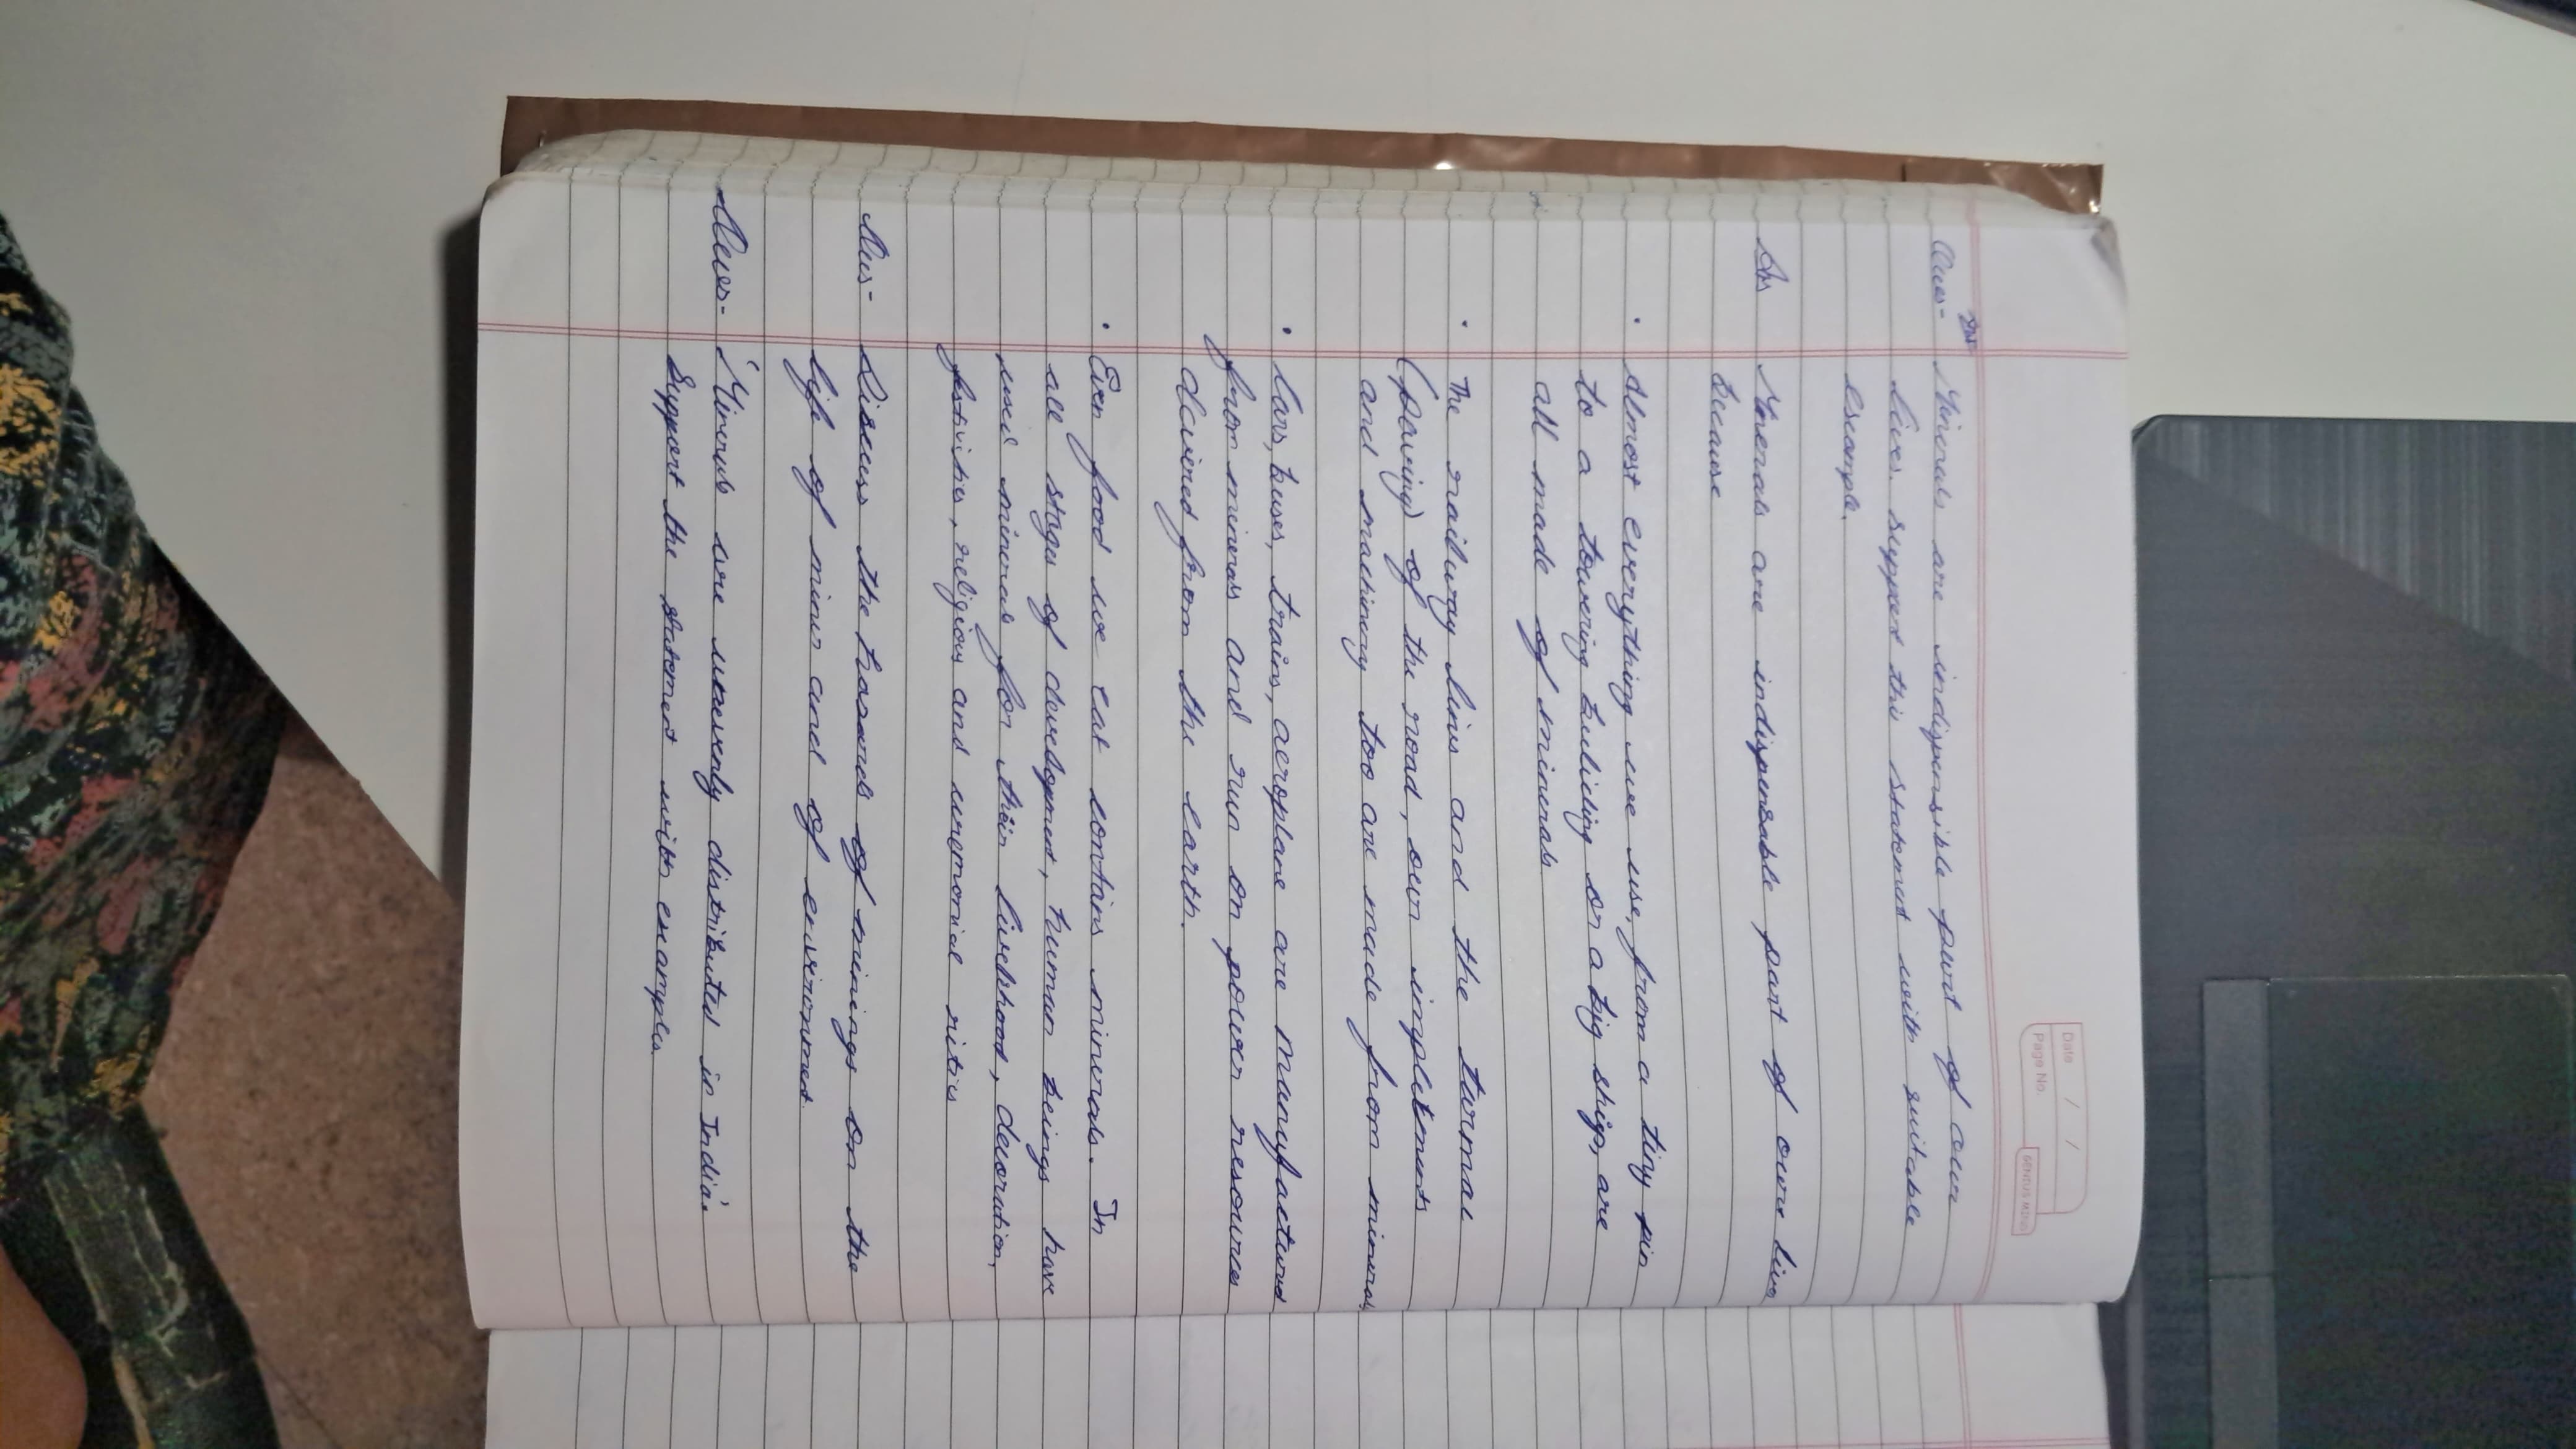 Date / /
Page No
Ques- Minerals are indispensible part of our
lives. support this statement with suitable
example.
Ans Minerals are indispensable part of oure lives
because
• Almost everything we use, from a tiny pin
to a towering building or a big ship, are
all made of minerals
• The railway lines and the tormal
(paving) of the road, our implements
and machinery too are made from minerals,
• Cars, buses, trains, aeroplane are manufactured
from minerals and run on power resources
dericed from the earth.
• Even food we eat contains minerals. In
all stages of development, human beings have
used minerals for their livelihood, decoration,
festivities, religious and ceremonial rities
Discuss the hazards of minings on the
life of miners and of environment.
Ques- 'Minerals are unevenly distributed in India'.
Support the statement with examples.